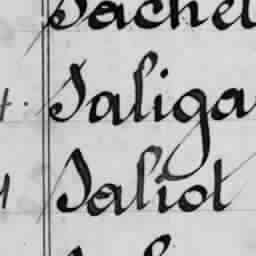 Sachet
Saliga
Saliot